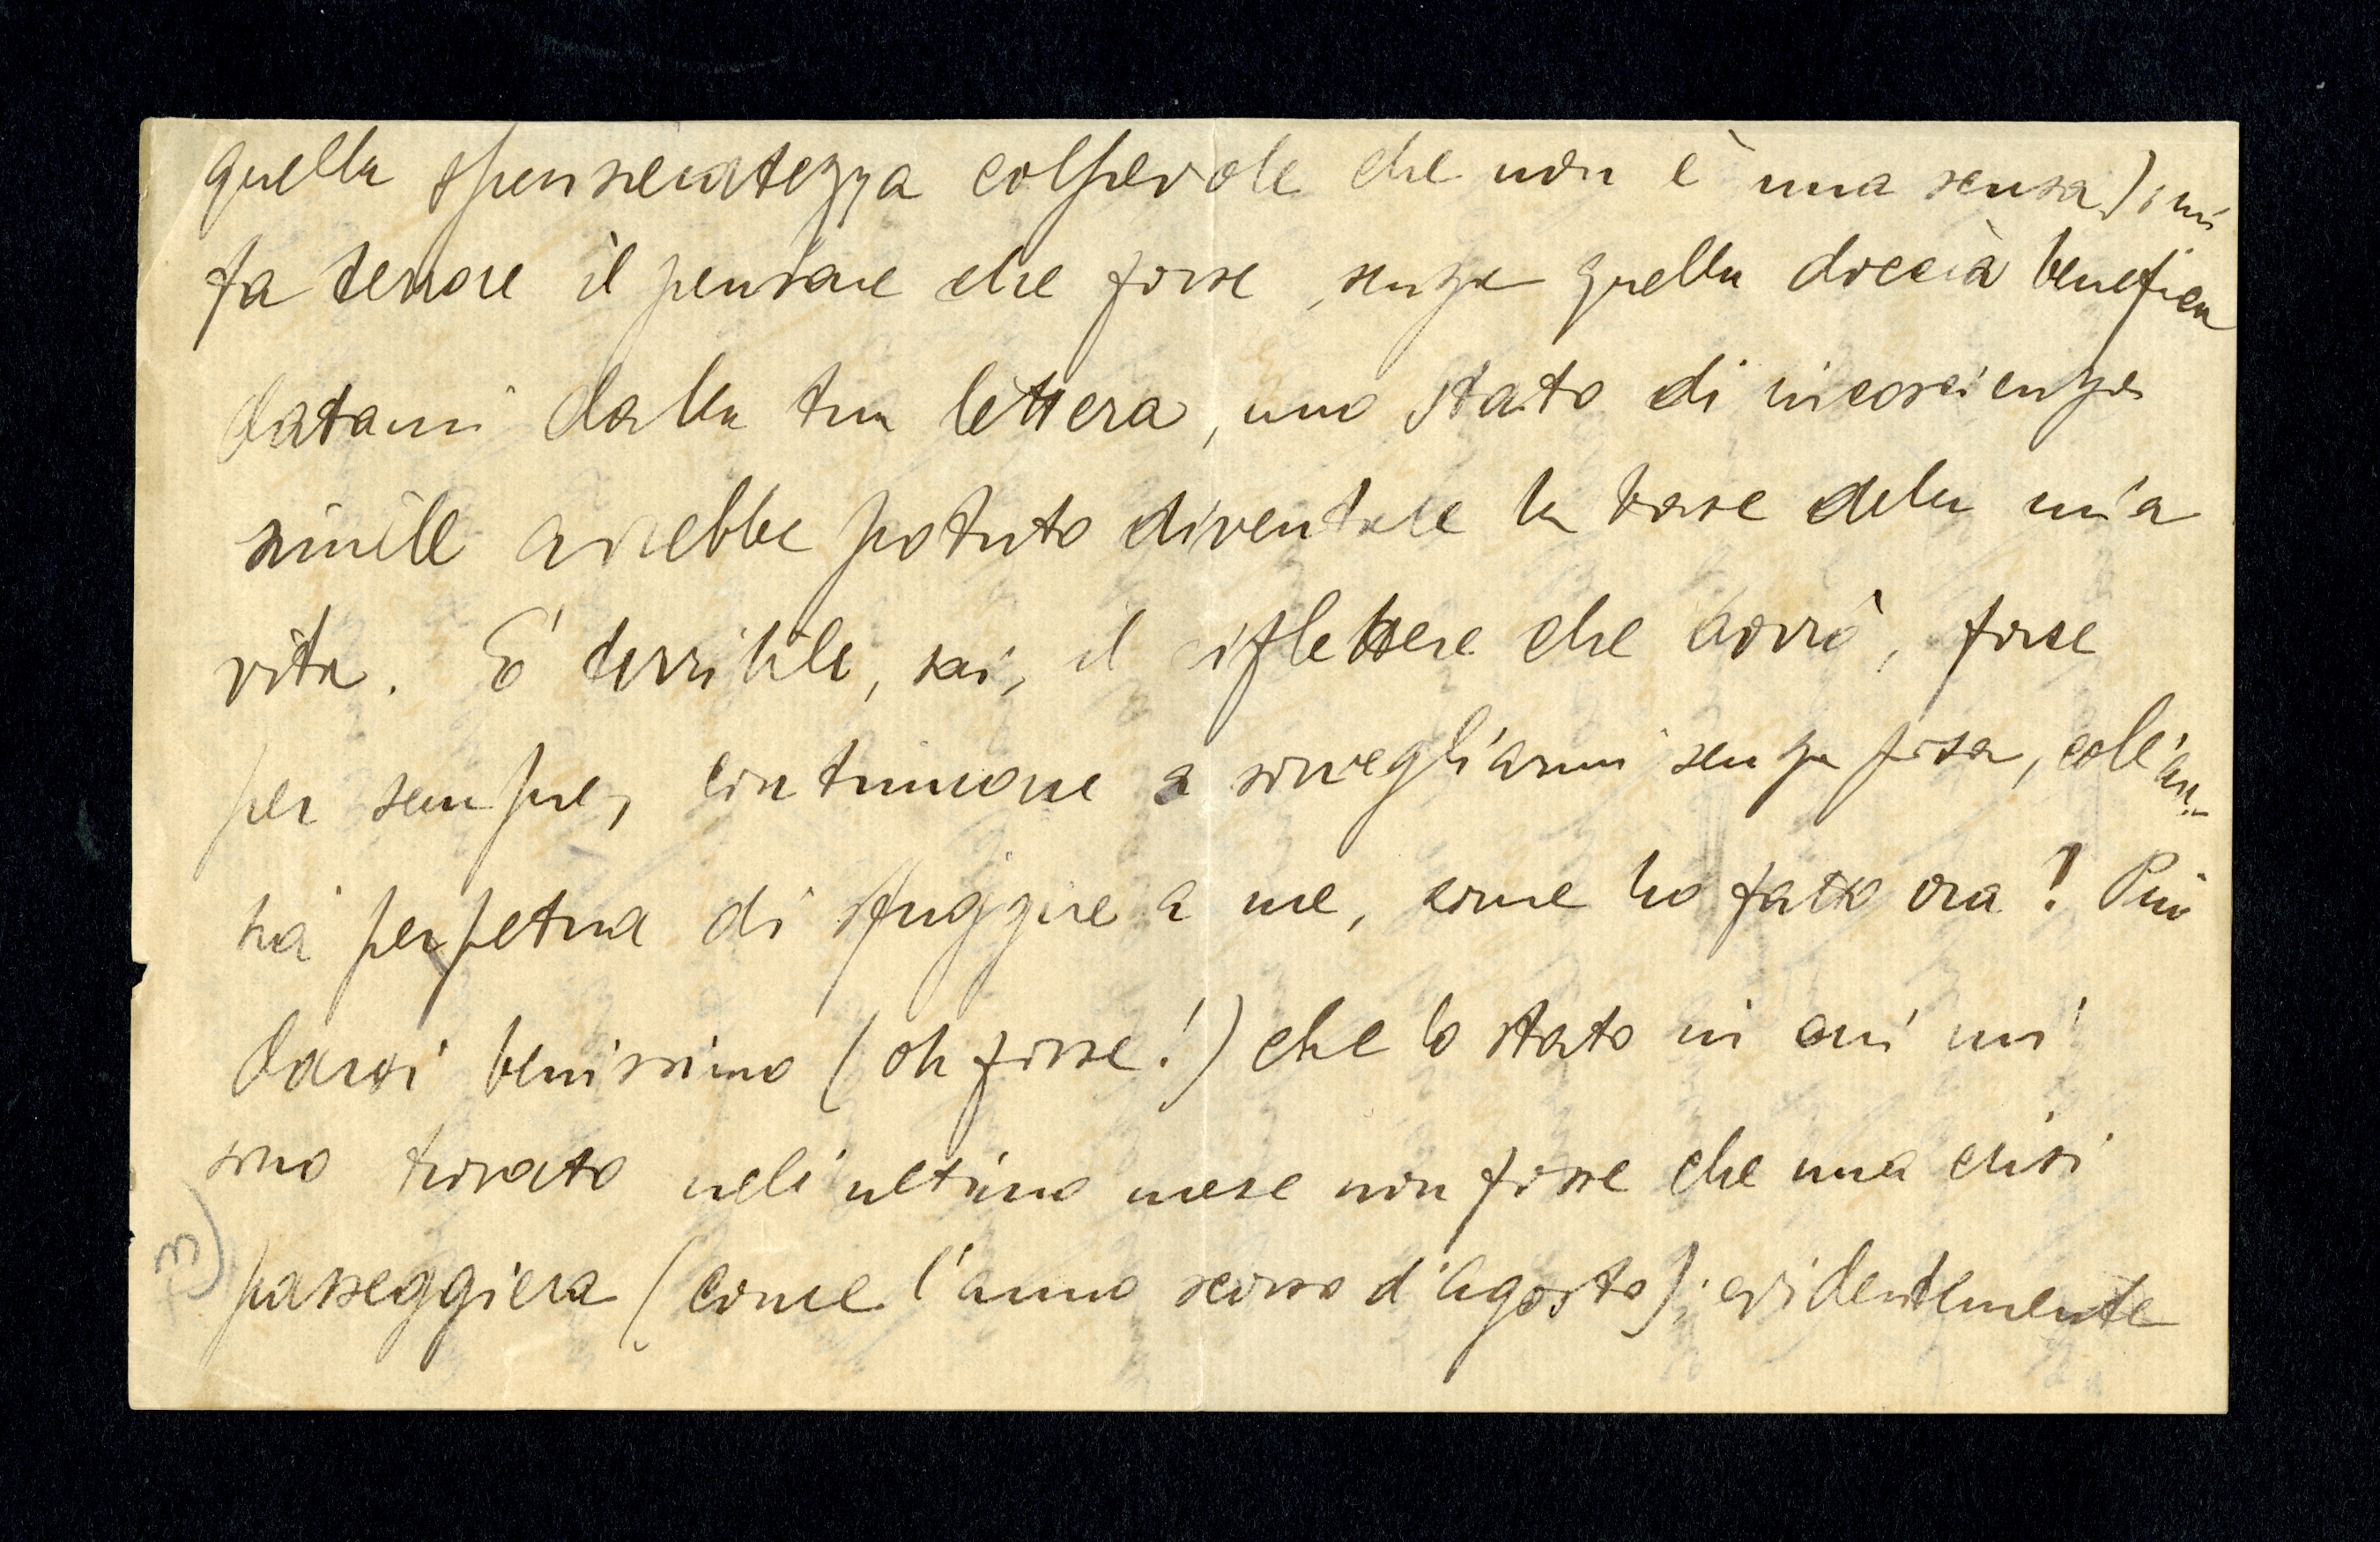 quella spensieratezza colpevole che non è una scusa); mi
fa terrore il pensare che forse, senza quella doccia benefica
datami dalla tua lettera, uno stato di incoscienza
simile avrebbe potuto diventare la base della mia
vita. È terribile, sai, il riflettere che dovrò, forse
per sempre, continuare a sorvegliarmi senza posa, coll'an-
sia perpetua di sfuggire a me, come ho fatto ora! Può
darsi benissimo (oh fosse!) che lo stato in cui mi
sono trovato nell'ultimo mese non fosse che una crisi
passeggiera (come l'anno scorso d'Agosto); evidentemente
3)